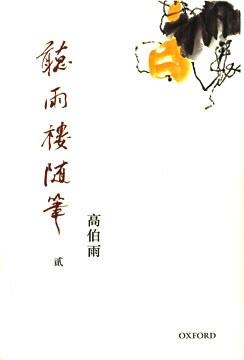 聽雨樓随筆
貳
高伯雨
OXFORD